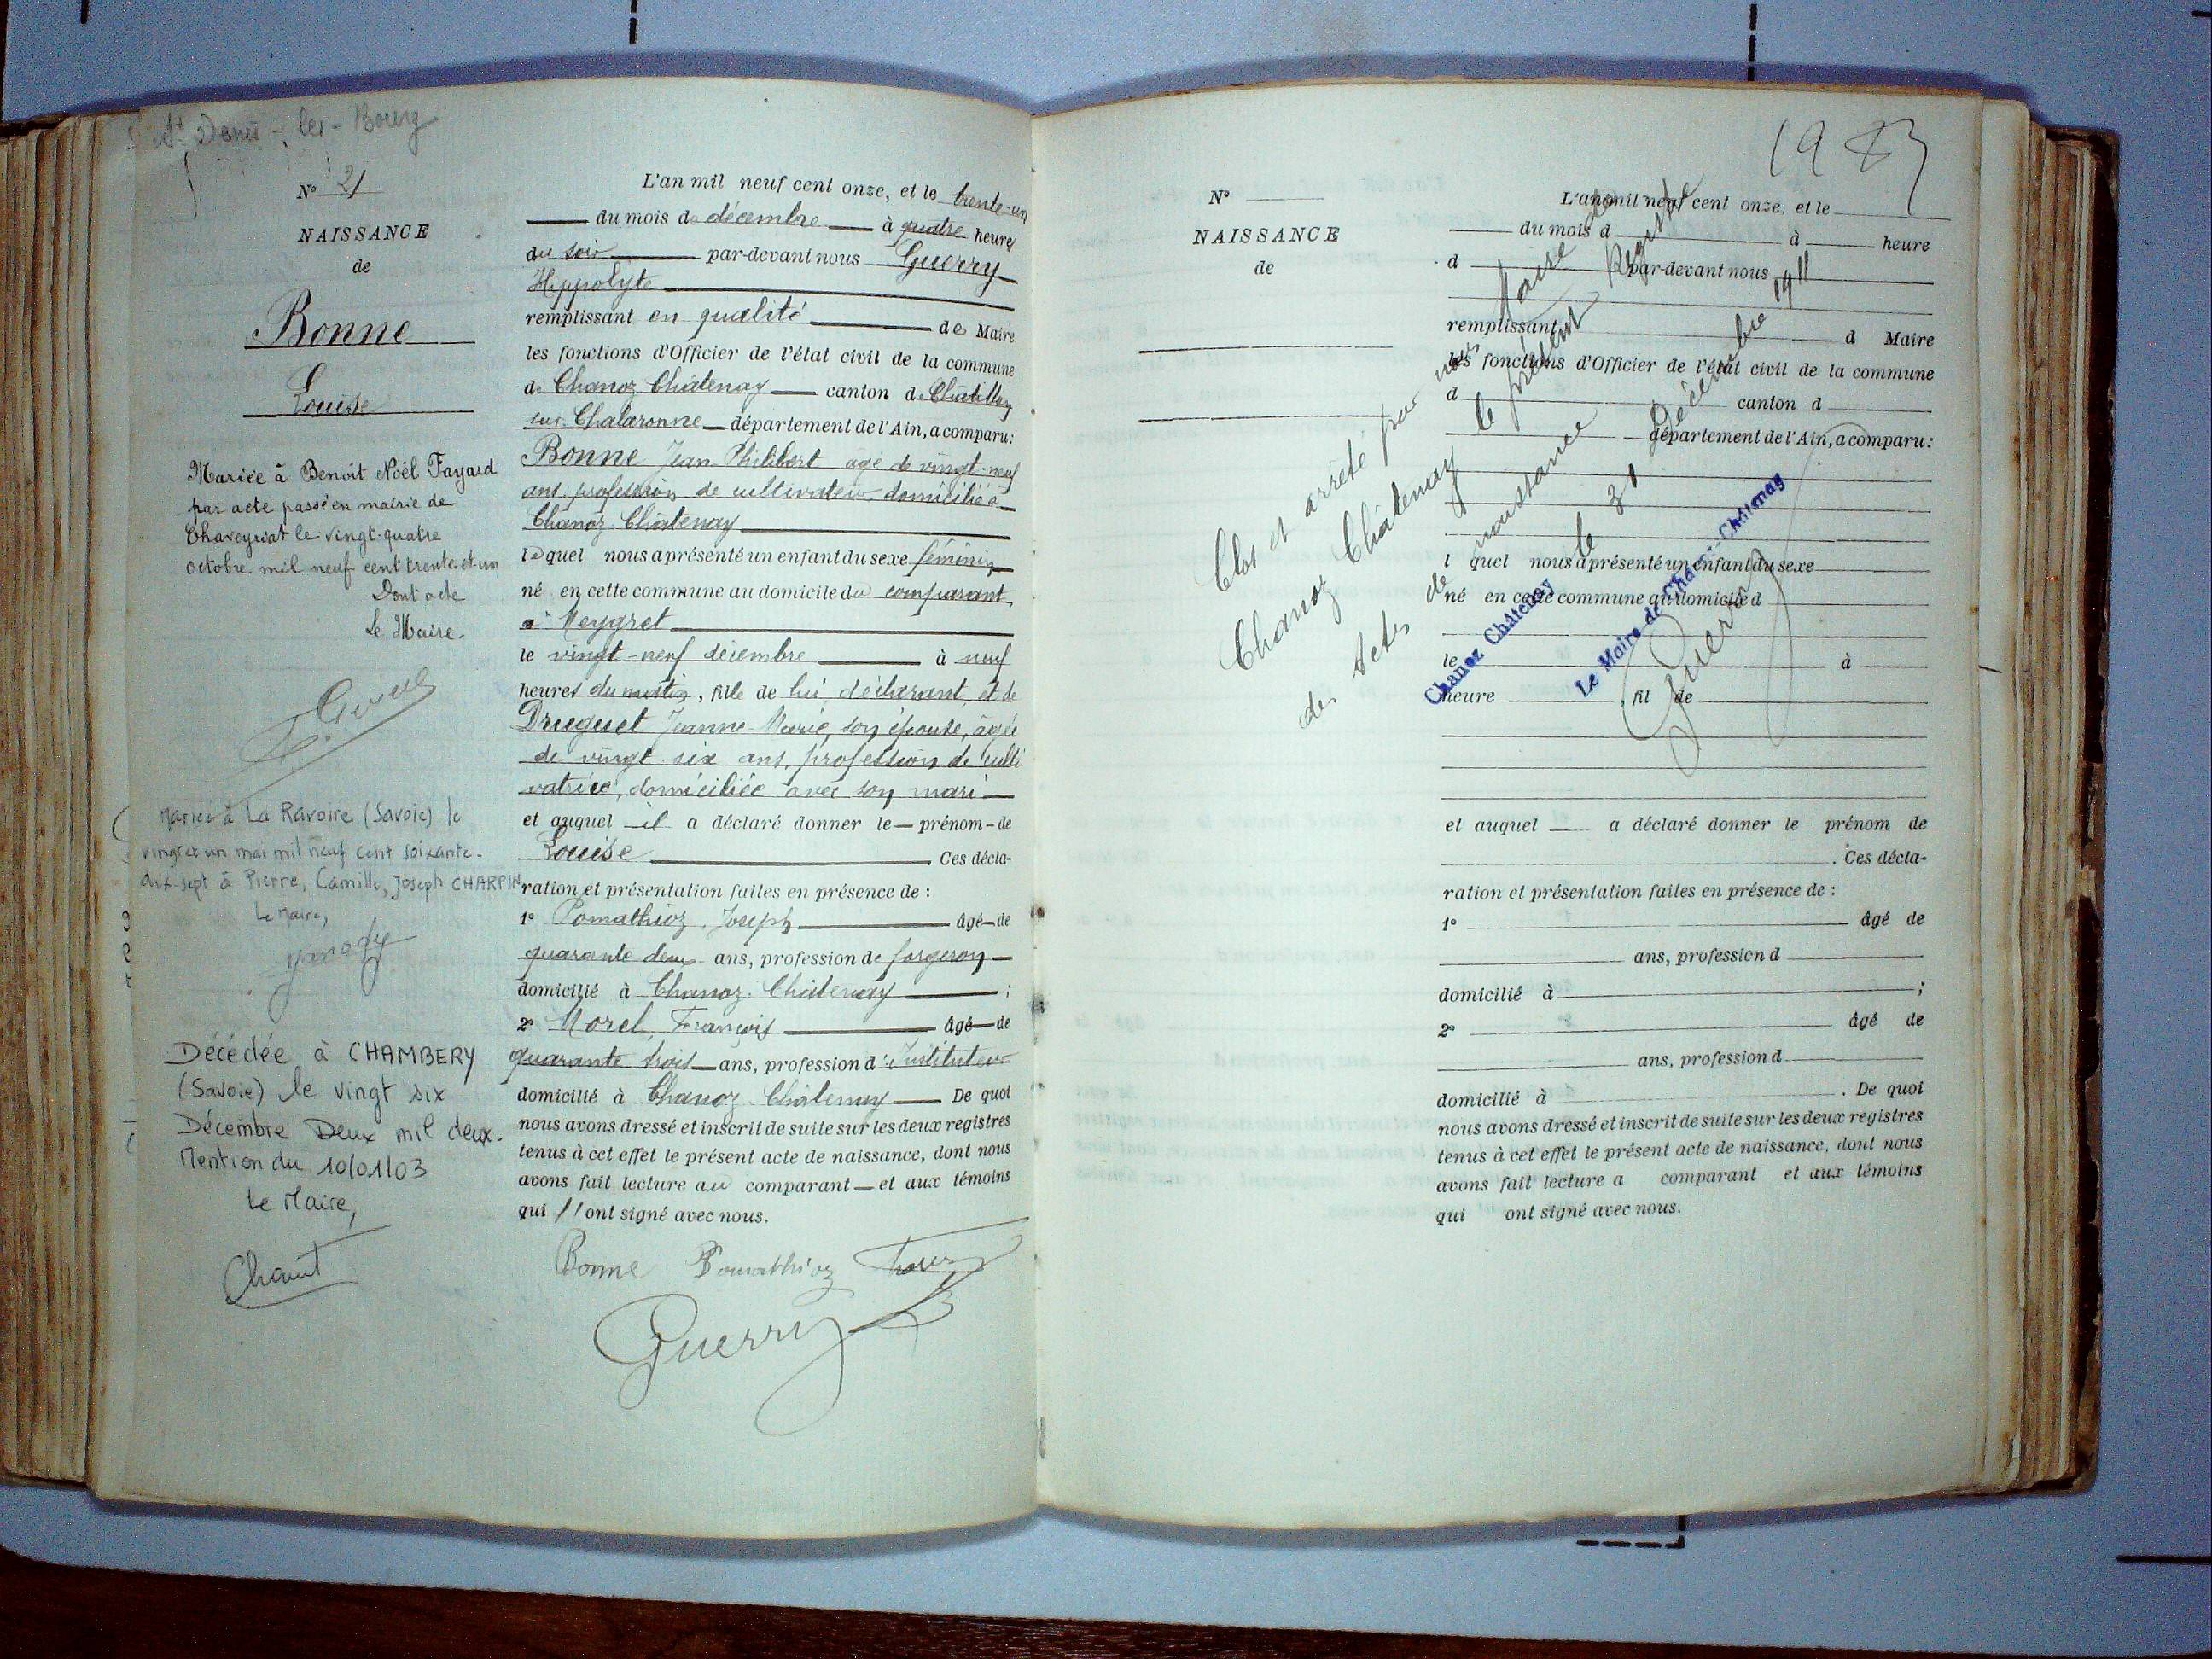 St Denis-les-Bourg
N° 21
NAISSANCE
de
Bonne
Louise
Mariée à Benoit Noël Fayard
par acte passé en mairie de
Chaveyriat le vingt-quatre
octobre mil neuf cent trente-et-un
Dont acte
Le Maire.
Mariée à La Ravoire (Savoie) le
vingt et un mai mil neuf cent soixante-
dix-sept à Pierre, Camille, Joseph CHARPIN
Le Maire,
Décédée à CHAMBERY
(Savoie) le vingt six
Décembre Deux mil deux.
Mention du 10/01/03
Le Maire,
L'an mil neuf cent onze, et le trente-un
du mois de décembre à quatre heures
du soir par-devant nous Guerry
Hippolyte
remplissant en qualité de Maire
les fonctions d'Officier de l'état civil de la commune
de Chanoz Châtenay canton de Châtillon
sur Chalaronne département de l'Ain, a comparu:
Bonne Jean Philibert agé de vingt-neuf
ans, profession de cultivateur domicilié à
Chanoz-Châtenay
lequel nous a présenté un enfant du sexe féminin
né en cette commune au domicile du comparant
à Meygret
le vingt-neuf décembre à neuf
heures du matin, fille de lui, déclarant, et de
Druguet Jeanne-Marie, son épouse, âgée
de vingt-six ans, profession de culti
vatrice, domiciliée avec son mari
et auquel il a déclaré donner le prénom de
Louise Ces décla-
ration et présentation faites en présence de :
1° Pomathioz, Joseph âgé de
quarante deux ans, profession de forgeron
domicilié à Chanoz-Châtenay ;
2° Morel, François âgé de
quarante trois ans, profession d'Instituteur
domicilié à Chanoz-Châtenay De quoi
nous avons dressé et inscrit de suite sur les deux registres
tenus à cet effet le présent acte de naissance, dont nous
avons fait lecture au comparant et aux témoins
qui ont signé avec nous.
Bonne Pomathioz
Guerry
N°
NAISSANCE
de
L'an mil neuf cent onze, et le
du mois d à heure
d par-devant nous
remplissant d Maire
les fonctions d'Officier de l'état civil de la commune
d canton d
département de l'Ain, a comparu:
l quel nous a présenté un enfant du sexe
né en cette commune au domicile d
le à
heure , fil de
et auquel a déclaré donner le prénom de
. Ces décla-
ration et présentation faites en présence de :
1° âgé de
ans, profession d
domicilié à ;
2° âgé de
ans, profession d
domicilié à . De quoi
nous avons dressé et inscrit de suite sur les deux registres
tenus à cet effet le présent acte de naissance, dont nous
avons fait lecture a comparant et aux témoins
qui ont signé avec nous.
Clos et arrêté par nous Maire de
Chanoz Châtenay le présent Registre
des Actes de naissance
Chanoz Châtenay le 31 Décembre 1911
Le Maire de Chanoz-Châtenay
Guerry